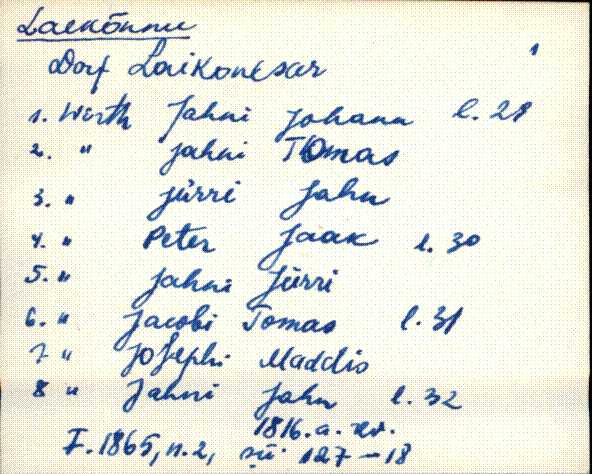 Laekõnnu
1
Dorf Laikonesar
1. Wirth Jahni Johann l. 28
2. " Jahni Tomas
3. " Jürri Jahn
4. " Peter Jaak l. 30
5. " Jahni Jürri
6. " Jacobi Tomas l. 31
7 " Josephi Maddis
8 " Jahni Jahn l. 32
1816. a. rev.
F. 1865, n. 2, sü. 127-18